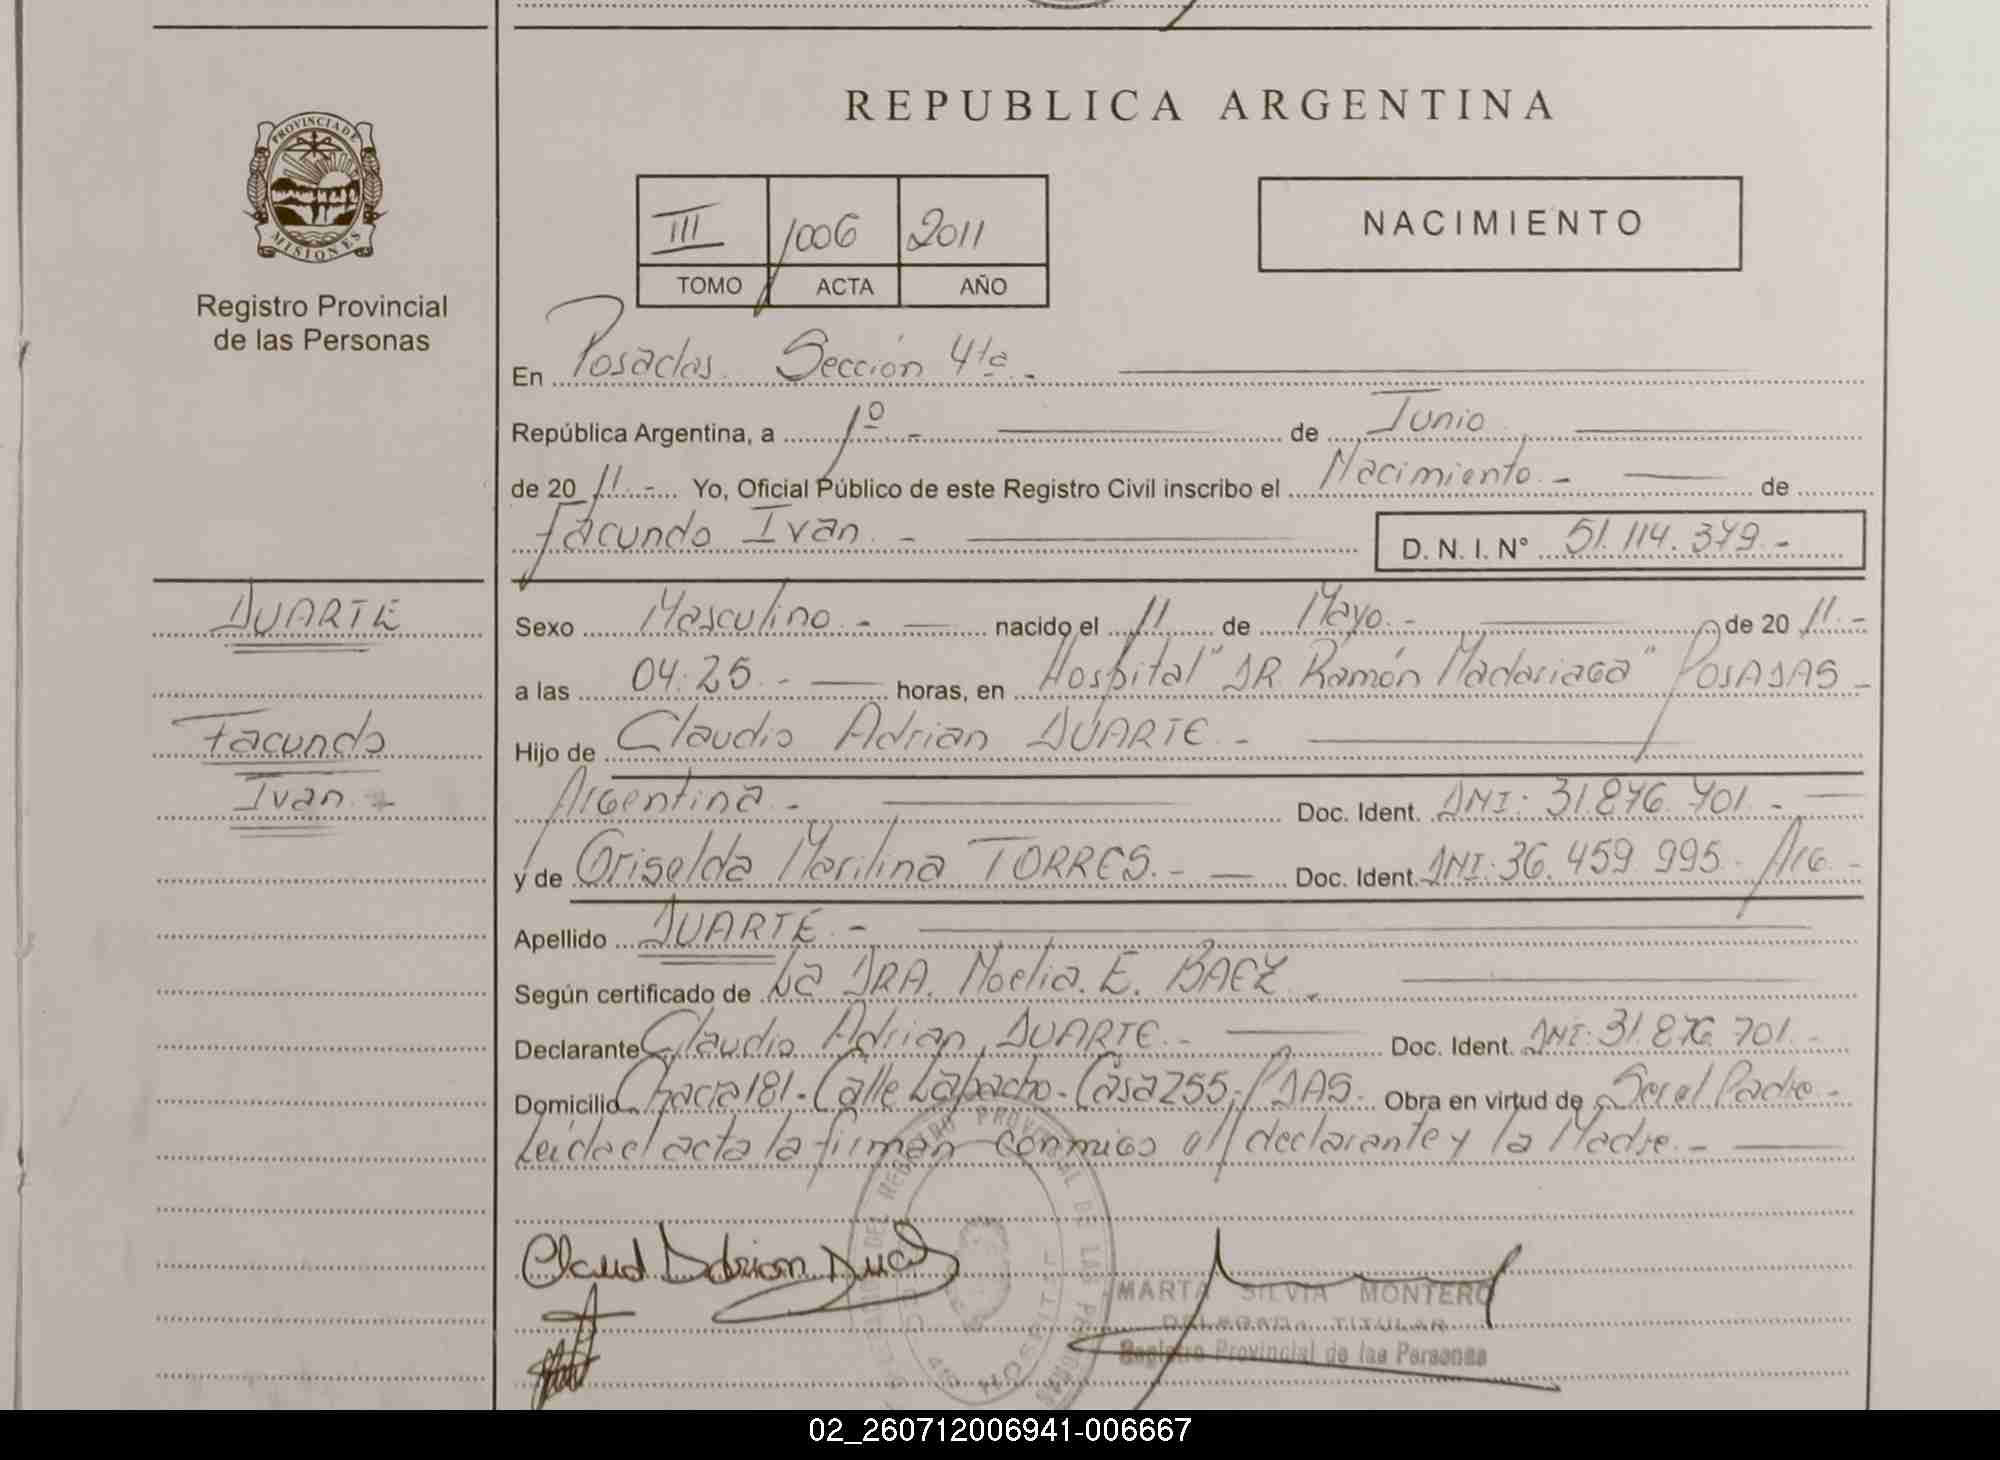 REPUBLICA ARGENTINA
PROVINCIA DE
MISIONES
Registro Provincial
de las Personas
III 1006 2011
TOMO ACTA AÑO
NACIMIENTO
En Posadas. Sección 4ta.-
República Argentina, a 1º.- de Junio
de 20 11.- Yo, Oficial Público de este Registro Civil inscribo el Nacimiento.- de
Facundo Ivan.- D. N. I. Nº 51.114.379.-
DUARTE
Facundo
Ivan.-
Sexo Masculino.- nacido el 11 de Mayo.- de 20 11.-
a las 04:25.- horas, en Hospital "DR Ramón Madariaga" POSADAS-
Hijo de Claudio Adrian DUARTE.-
Argentina.- Doc. Ident. DNI: 31.876.701.-
y de Griselda Marilina TORRES.- Doc. Ident. DNI: 36.459.995. Arg.-
Apellido DUARTE.-
Según certificado de La DRA. Noelia. E. BAEZ.
Declarante Claudio Adrian DUARTE.- Doc. Ident. DNI: 31.876.701.-
Domicilio Chacra 181- Calle Lapacho- Casa 255, PDAS. Obra en virtud de Ser el Padre-
Leída el acta la firman conmigo el declarante y la Madre.-
Claud Adrian
MARTA SILVIA MONTERO
DELEGADA TITULAR
Registro Provincial de las Personas
02_260712006941-006667